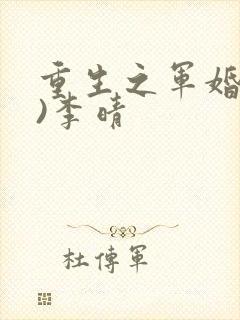 重生之军婚
)李晴
杜传军